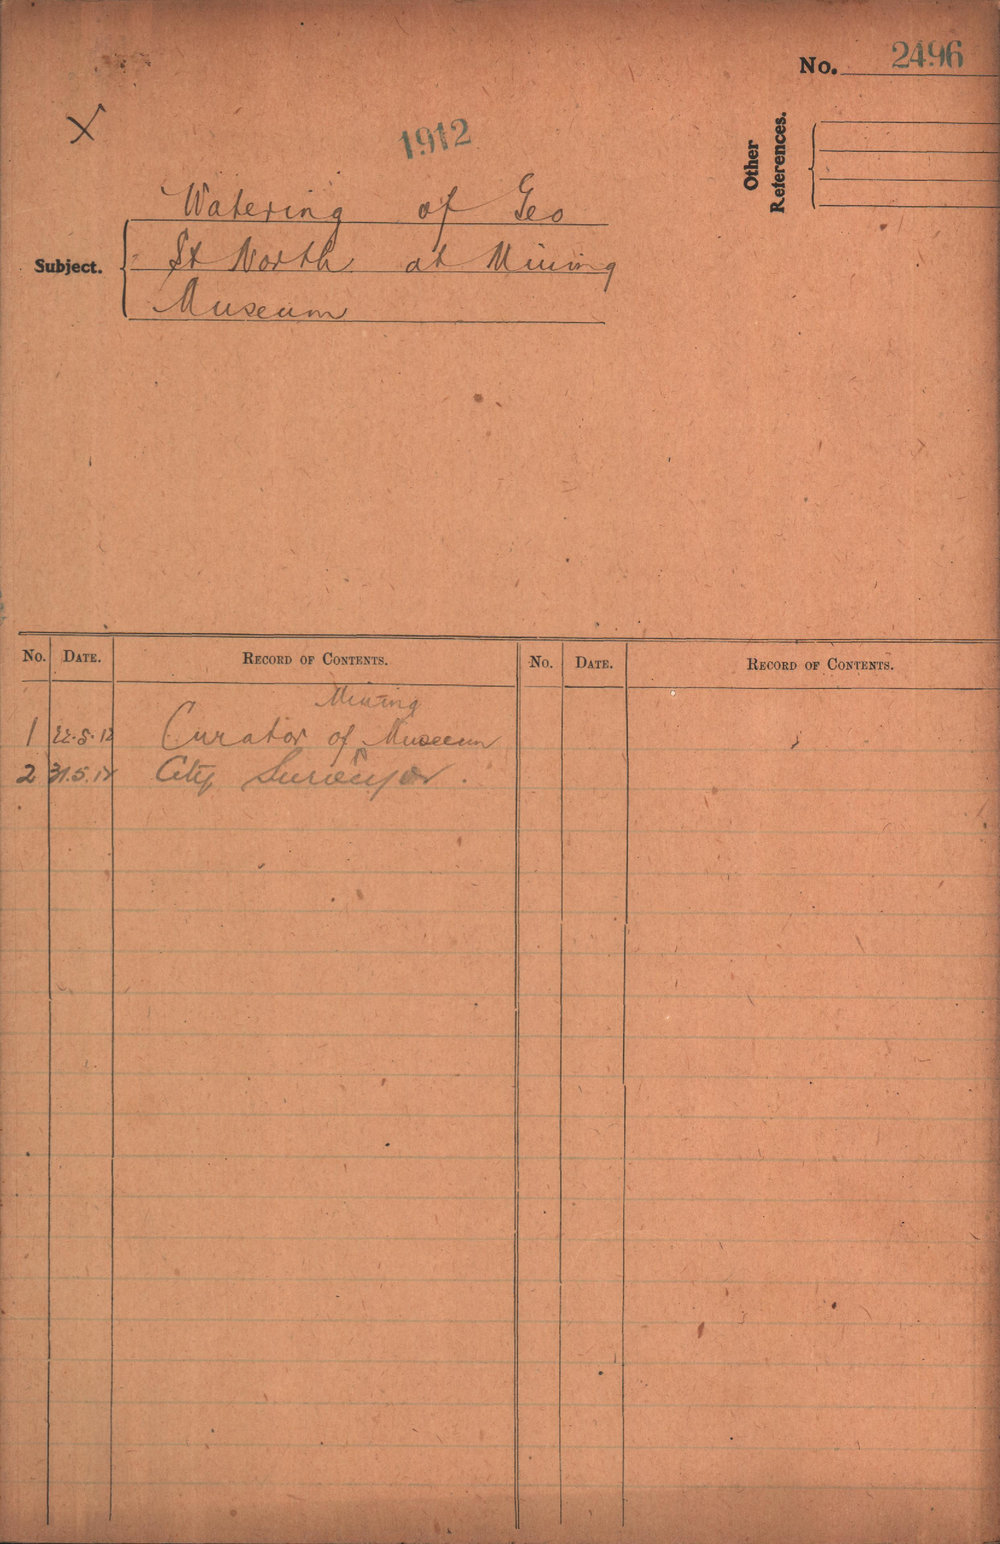 No. 2496
1912
Other
References.
Subject.
Watering of Geo
St North at Mining
Museum
No. DATE. RECORD OF CONTENTS. No. DATE. RECORD OF CONTENTS.
Mining
1 22.5.12 Curator of Museum
2 31.5.12 City Surveyor.